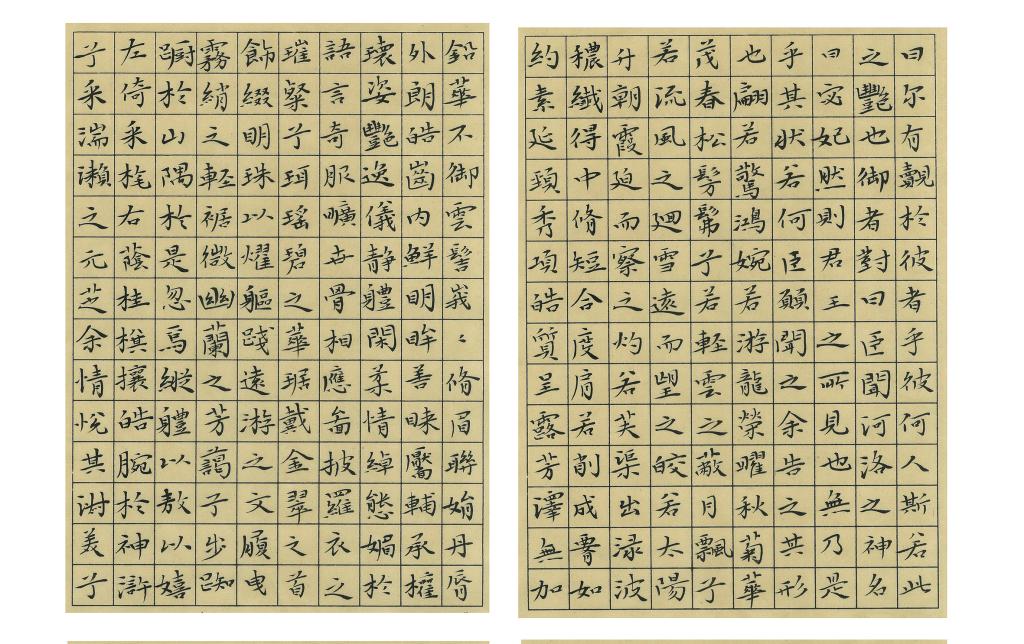 曰尔有觀於彼者乎彼何人斯若此
之豔也御者對曰臣聞河洛之神名
曰宓妃然則君王之所見也無乃是
乎其狀若何臣願聞之余告之其形
也翩若驚鴻婉若游龍榮曜秋菊華
茂春松髣髴兮若輕雲之蔽月飄兮
若流風之迴雪遠而望之皎若太陽
升朝霞迫而察之灼若芙渠出淥波
穠纖得中脩短合度肩若削成腰如
約素延頸秀項皓質呈露芳澤無加
鉛華不御雲髻峩〻脩眉聯娟丹脣
外朗皓齒內鮮明眸善睞靨輔承權
瓌姿豔逸儀静體閑柔情綽態媚於
語言奇服曠世骨相應圖披羅衣之
璀粲兮珥瑤碧之華琚戴金翠之首
飾綴明珠以耀軀踐遠游之文履曳
霧綃之輕裾微幽蘭之芳藹兮步踟
躕於山隅於是忽焉縱體以敖以嬉
左倚采旄右蔭桂旗攘皓腕於神滸
兮采湍瀨之元芝余情悅其淑美兮